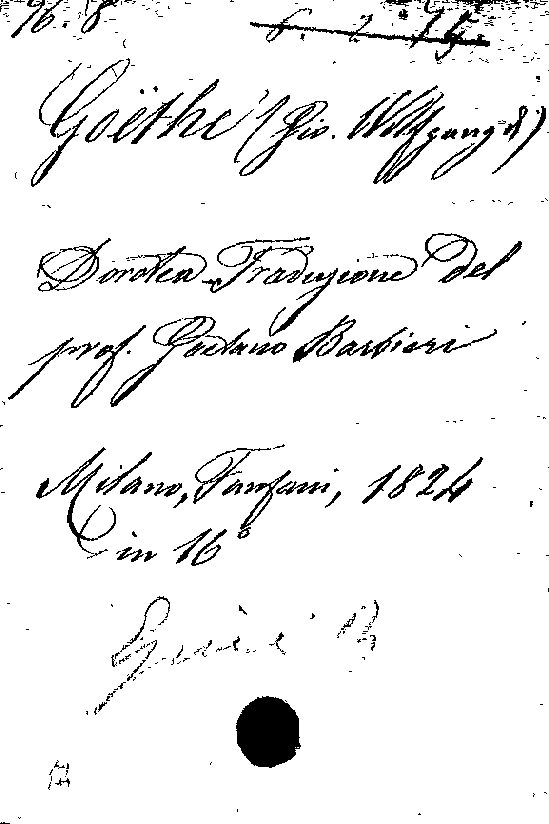 16. 8
6. 2. 15.
Goëthe (Gio. Wolfgang di)
Dorotea - Traduzione del
prof. Gaetano Barbieri
Milano, Fanfani, 1824
in 16°
B